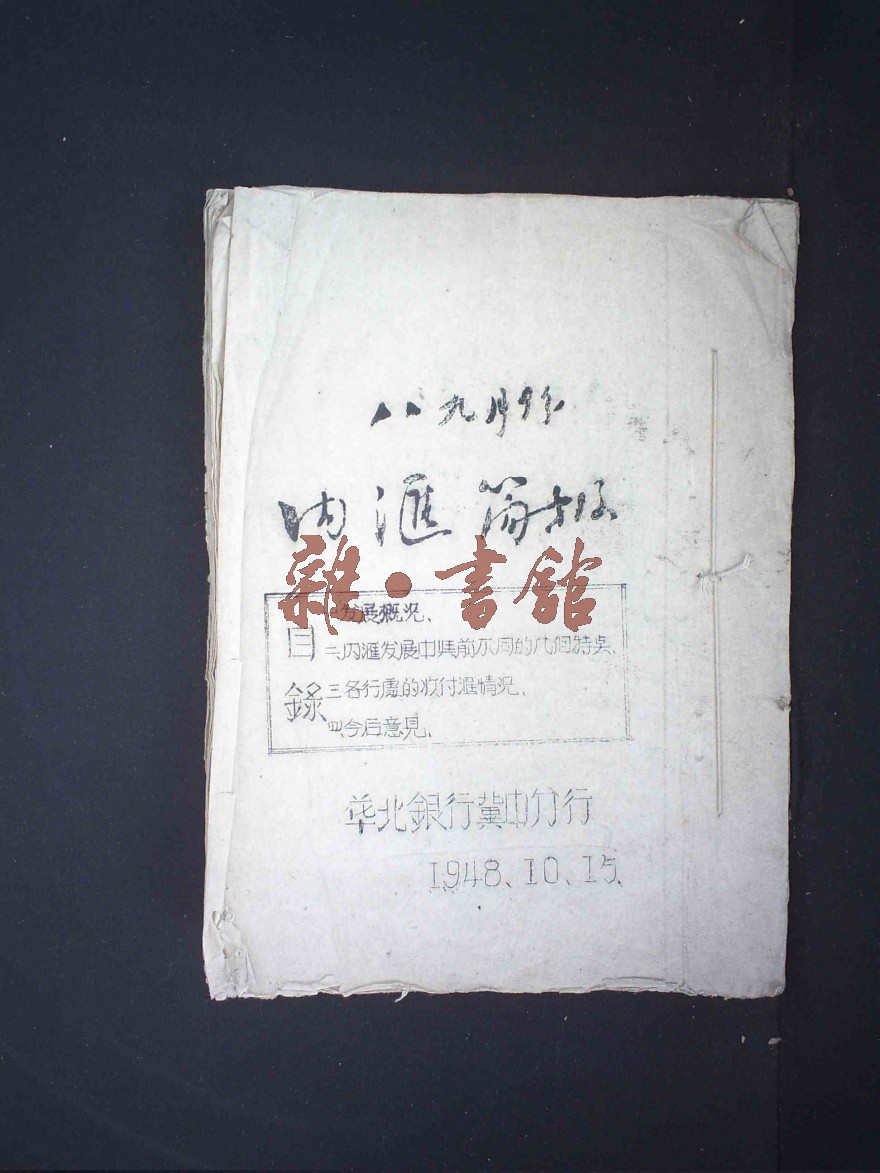 八九月份
内滙簡报
雜·書舘
目錄
一发展概况、
二、内滙发展中與前不同的几個特点、
三各行處的收付滙情况、
四、今后意見、
华北銀行冀中分行
1948、10、15、